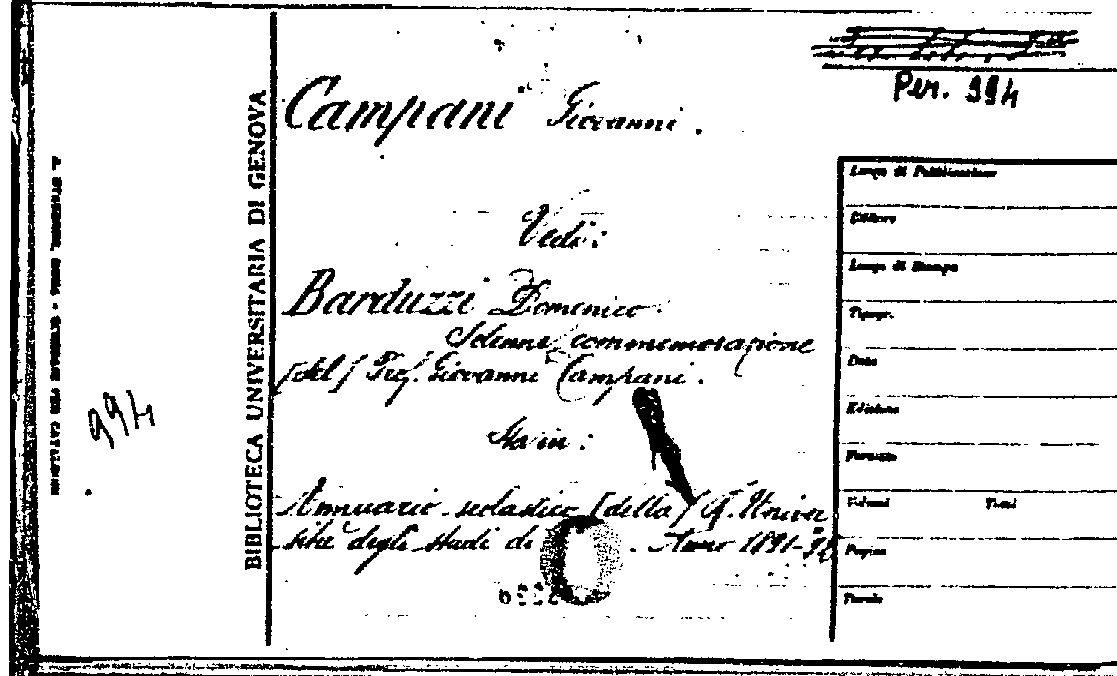 Per. 994
Campani Giovanni.
Vedi:
Barduzzi Domenico.
Solenne commemorazione
[del] Prof. Giovanni Campani.
Sta in:
Annuario scolastico [della] R. Univer
sità degli studi di . Anno 1891-92
BIBLIOTECA UNIVERSITARIA DI GENOVA
994
Luogo di Pubblicazione
Editore
Luogo di Stampa
Tipogr.
Data
Edizione
Formato
Volumi Tomi
Pagine
Tavole